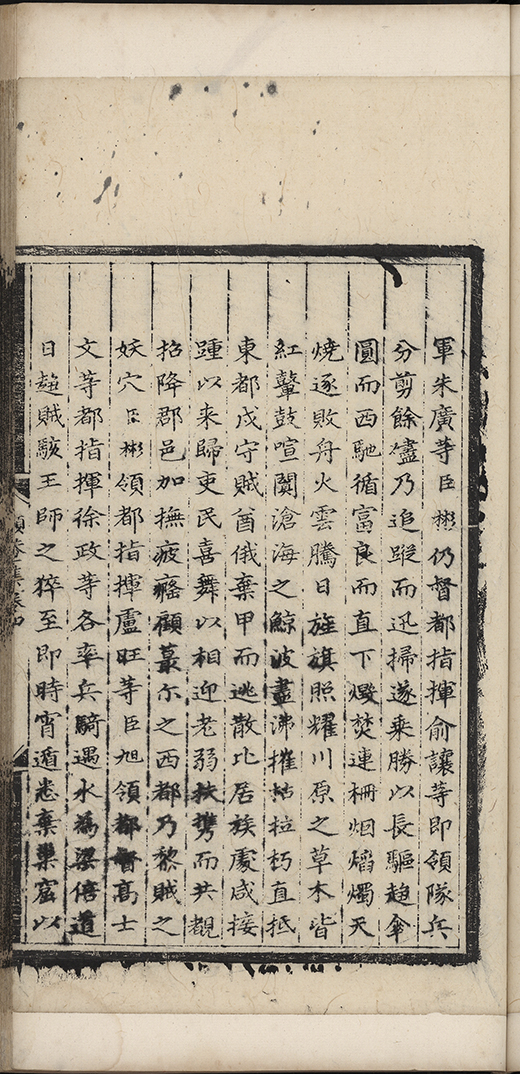 軍朱廣等臣彬仍督都指揮俞讓等即領隊兵
分剪餘燼乃追蹤而迅掃遂乘勝以長驅趍傘
圓而西馳循富良而直下燬焚連柵烟熖燭天
燒逐敗舟火雲騰日旌旗照耀川原之草木皆
紅鼙鼓喧闐滄海之鯨波盡沸摧枯拉朽直抵
東都戍守賊酋俄棄甲而逃散比居族處咸接
踵以来歸吏民喜舞以相迎老弱扶携而共覩
招降郡邑加撫疲癃顧蕞尓之西都乃黎賊之
妖穴臣彬領都指揮盧旺等臣旭領都督高士
文等都指揮徐政等各率兵騎遇水為梁倍道
日趍賊駭王師之猝至即時宵遁悉棄巢窟以